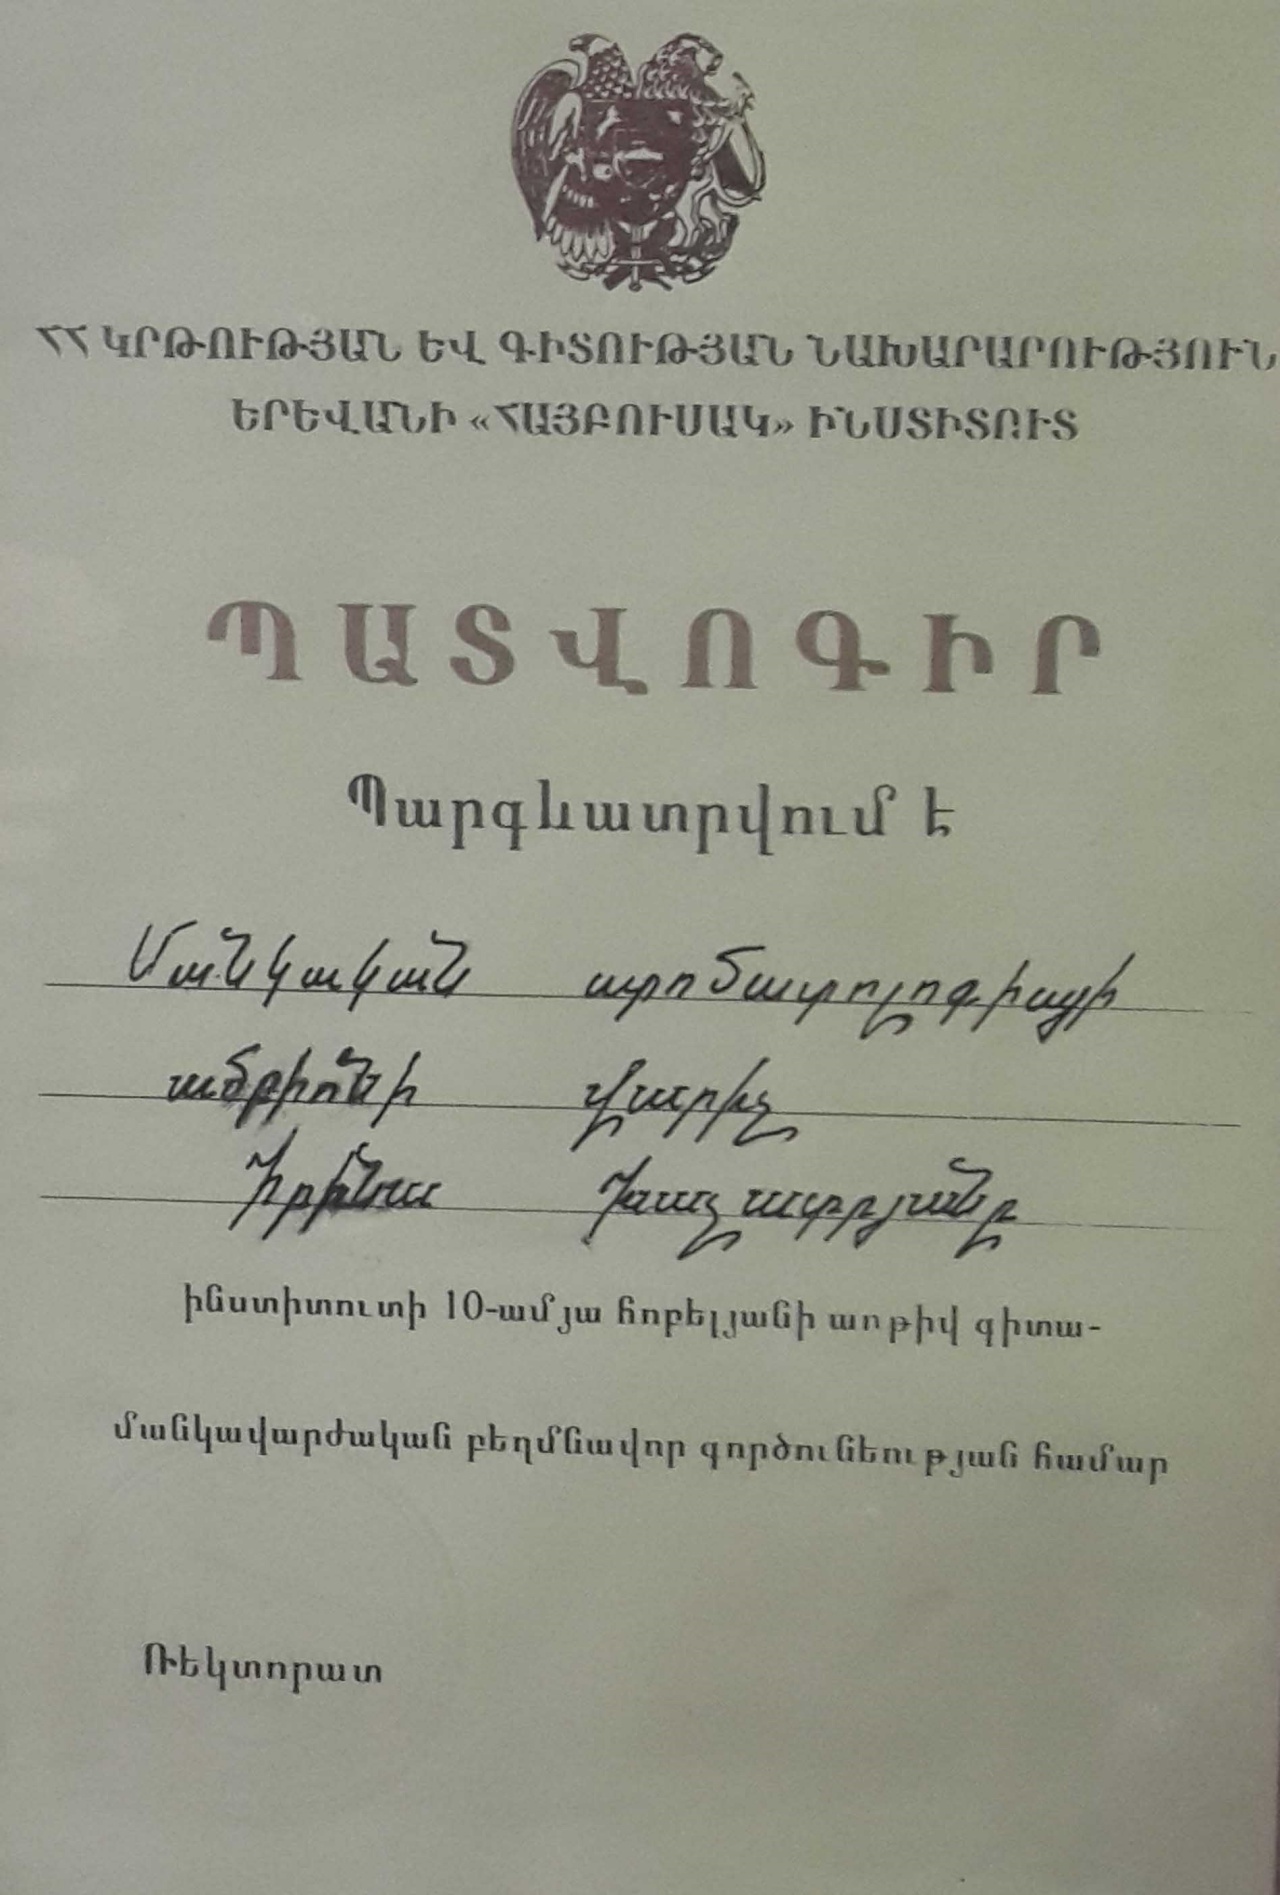 ՀՀ ԿՐԹՈՒԹՅԱՆ ԵՎ ԳԻՏՈՒԹՅԱՆ ՆԱԽԱՐԱՐՈՒԹՅՈՒՆ
ԵՐԵՎԱՆԻ «ՀԱՅԲՈՒՍԱԿ» ԻՆՍՏԻՏՈՒՏ
ՊԱՏՎՈԳԻՐ
Պարգևատրվում է
Մանկական ստոմատոլոգիայի
ամբիոնի վարիչ
Իրինա Խաչատրյանը
ինստիտուտի 10-ամյա հոբելյանի առթիվ գիտա-
մանկավարժական բեղմնավոր գործունեության համար
Ռեկտորատ